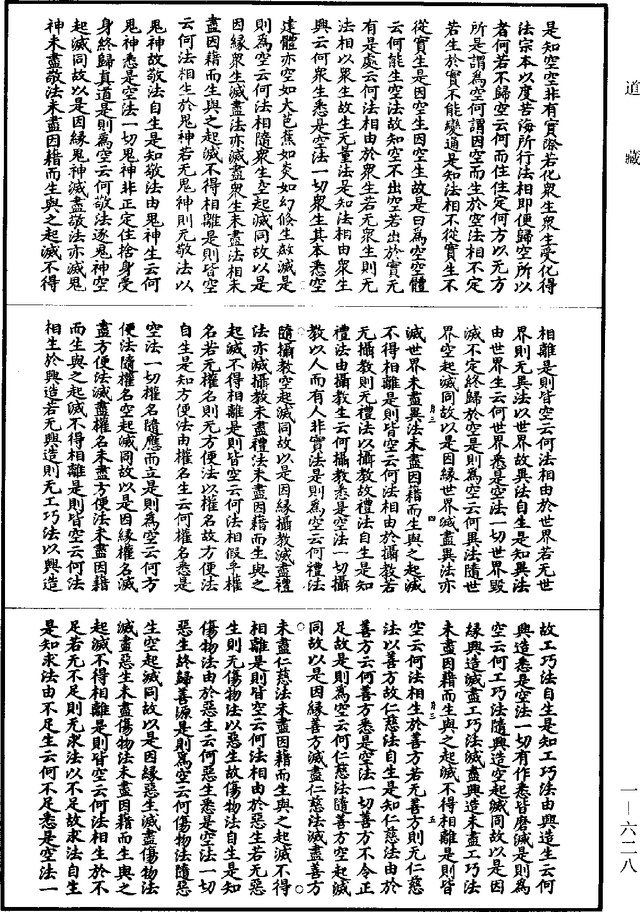 道藏
是知空空非有實際若化眾生眾生受化得
法宗本以度苦海所行法相即便歸空所以
者何若不歸空云何而住住定何方以无方
所是謂為空何謂因空而生於空法相不定
若生於實不能變通是知法相不從實生不
從實生是因空生因空生故是曰為空空體
云何能生空法故知空不出空若出於實无
有是處云何法相由於眾生若无眾生則无
法相以眾生故生无量法是知法相由眾生
興云何眾生悉是空法一切眾生其本悉空
達體亦空如大芭蕉如炎如幻倏生欻滅是
則為空云何法相隨眾生空起滅同故以是
因緣眾生滅盡法亦滅盡眾生未盡法相未
盡因藉而生與之起滅不得相離是則皆空
云何法相生於鬼神若无鬼神則无敬法以
鬼神故敬法自生是知敬法由鬼神生云何
鬼神悉是空法一切鬼神非正定住捨身受
身終歸真道是則為空云何敬法逐鬼神空
起滅同故以是因緣鬼神滅盡敬法亦滅鬼
神未盡敬法未盡因藉而生與之起滅不得
相離是則皆空云何法相由於世界若无世
界則无異法以世界故異法自生是知異法
由世界生云何世界悉是空法一切世界毀
滅不定終歸於空是則為空云何異法隨世
界空起滅同故以是因緣世界滅盡異法亦
滅世界未盡異法未盡因藉而生與之起滅
不得相離是則皆空云何法相由於攝教若
无攝教則无禮法以攝教故禮法自生是知
禮法由攝教生云何攝教悉是空法一切攝
教以人而有人非實法是則為空云何禮法
隨攝教空起滅同故以是因緣攝教滅盡禮
法亦滅攝教未盡禮法未盡因藉而生與之
起滅不得相離是則皆空云何法相假乎權
名若无權名則无方便法以權名故方便法
自生是知方便法由權名生云何權名悉是
空法一切權名隨應而立是則為空云何方
便法隨權名空起滅同故以是因緣權名滅
盡方便法滅盡權名未盡方便法未盡因藉
而生與之起滅不得相離是則皆空云何法
相生於興造若无興造則无工巧法以興造
故工巧法自生是知工巧法由興造生云何
興造悉是空法一切有作悉皆磨滅是則為
空云何工巧法隨興造空起滅同故以是因
緣興造滅盡工巧法滅盡興造未盡工巧法
未盡因藉而生與之起滅不得相離是則皆
空云何法相生於善方若无善方則无仁慈
法以善方故仁慈法自生是知仁慈法由於
善方云何善方悉是空法一切善方不令正
足故是則為空云何仁慈法隨善方空起滅
同故以是因緣善方滅盡仁慈法滅盡善方
未盡仁慈法未盡因藉而生與之起滅不得
相離是則皆空云何法相由於惡生若无惡
生則无傷物法以惡生故傷物法自生是知
傷物法由於惡生云何惡生悉是空法一切
惡生終歸善源是則為空云何傷物法隨惡
生空起滅同故以是因緣惡生滅盡傷物法
滅盡惡生未盡傷物法未盡因藉而生與之
起滅不得相離是則皆空云何法相生於不
足若无不足則无求法以不足故求法自生
是知求法由不足生云何不足悉是空法一
一—六二八